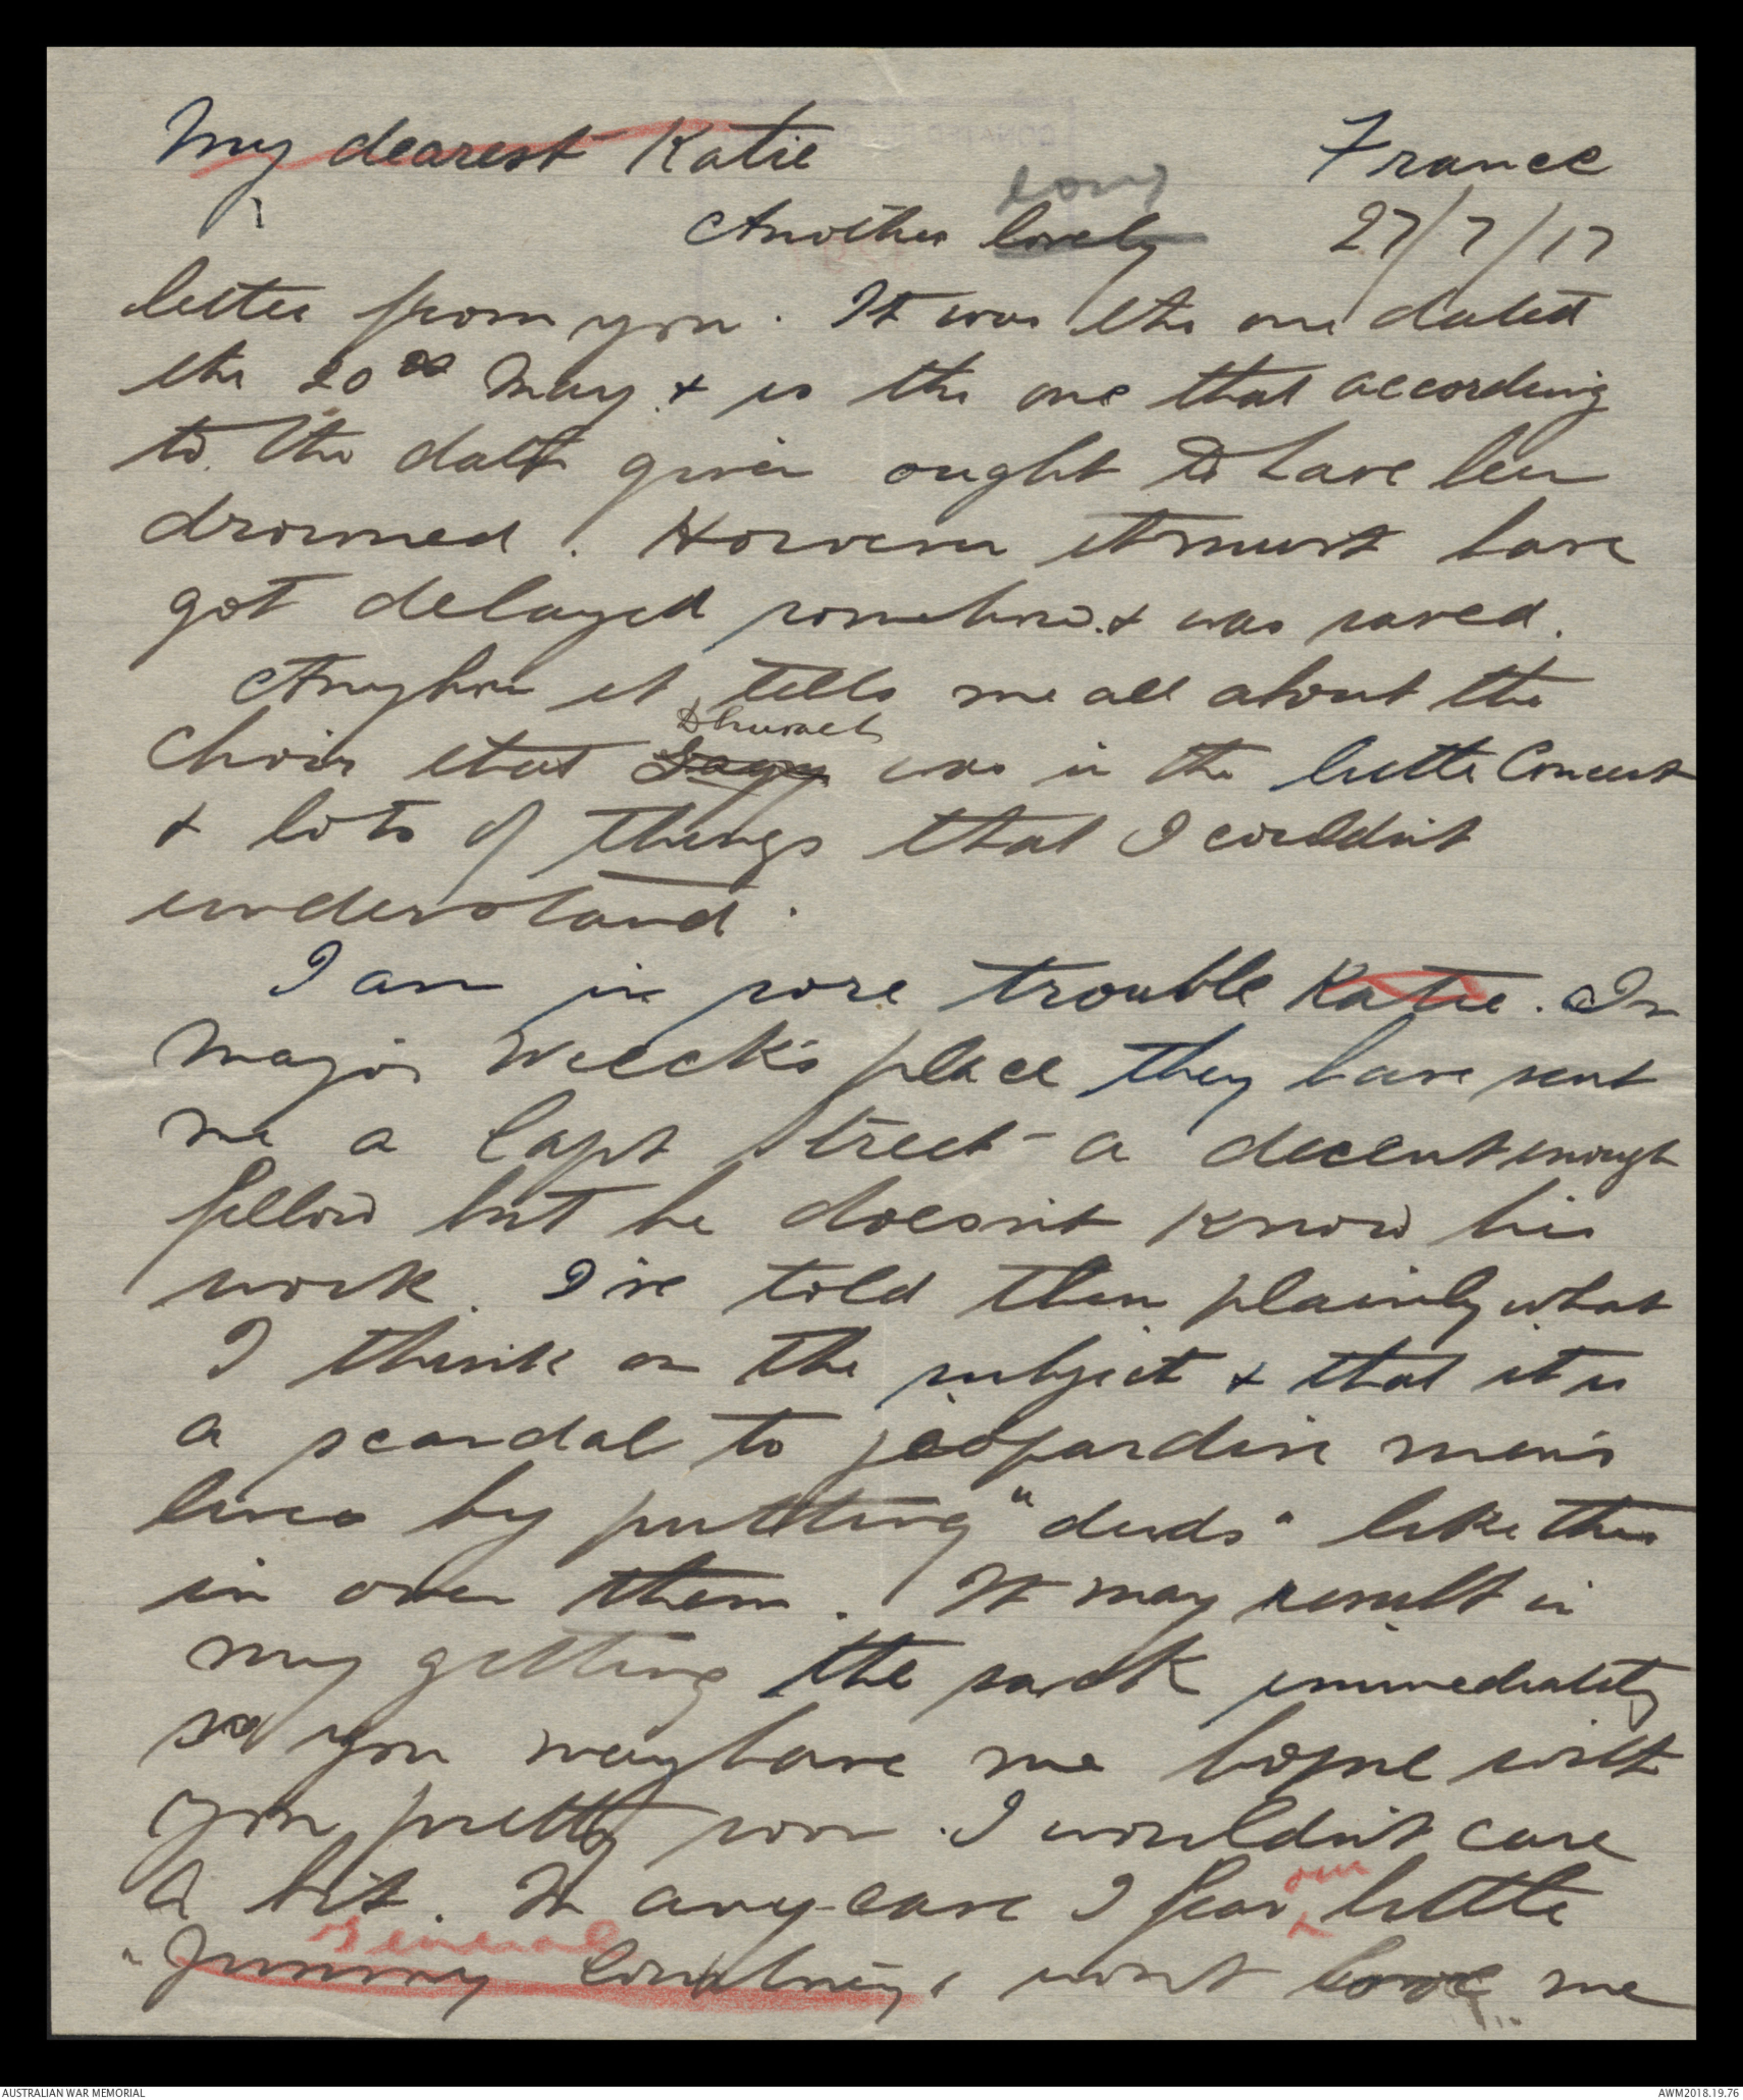 My dearest Katie France
long
Another lovely 27/7/17
letter from you. It was the one dated
the 20th May & is the one that according
to the date given ought to have been
drowned. However it must have
got delayed somehow & was saved.
Anyhow it tells me all about the
choir that was in the little Concert
& lots of things that I couldn't
understand.
I am in sore trouble Katie. In
Major Wieck's place they have sent
me a Capt Street - a decent enough
fellow but he doesn't know his
work. I've told them plainly what
I think on the subject & that it is
a scandal to jeopardise men's
lives by putting "duds" like this
in over them. It may result in
my getting the sack immediately
so you may have me home with
you pretty soon. I wouldn't care
a bit. In any case I fear our little
General
"Jimmy Courtney" won't love me
AUSTRALIAN WAR MEMORIAL AWM2018.19.76